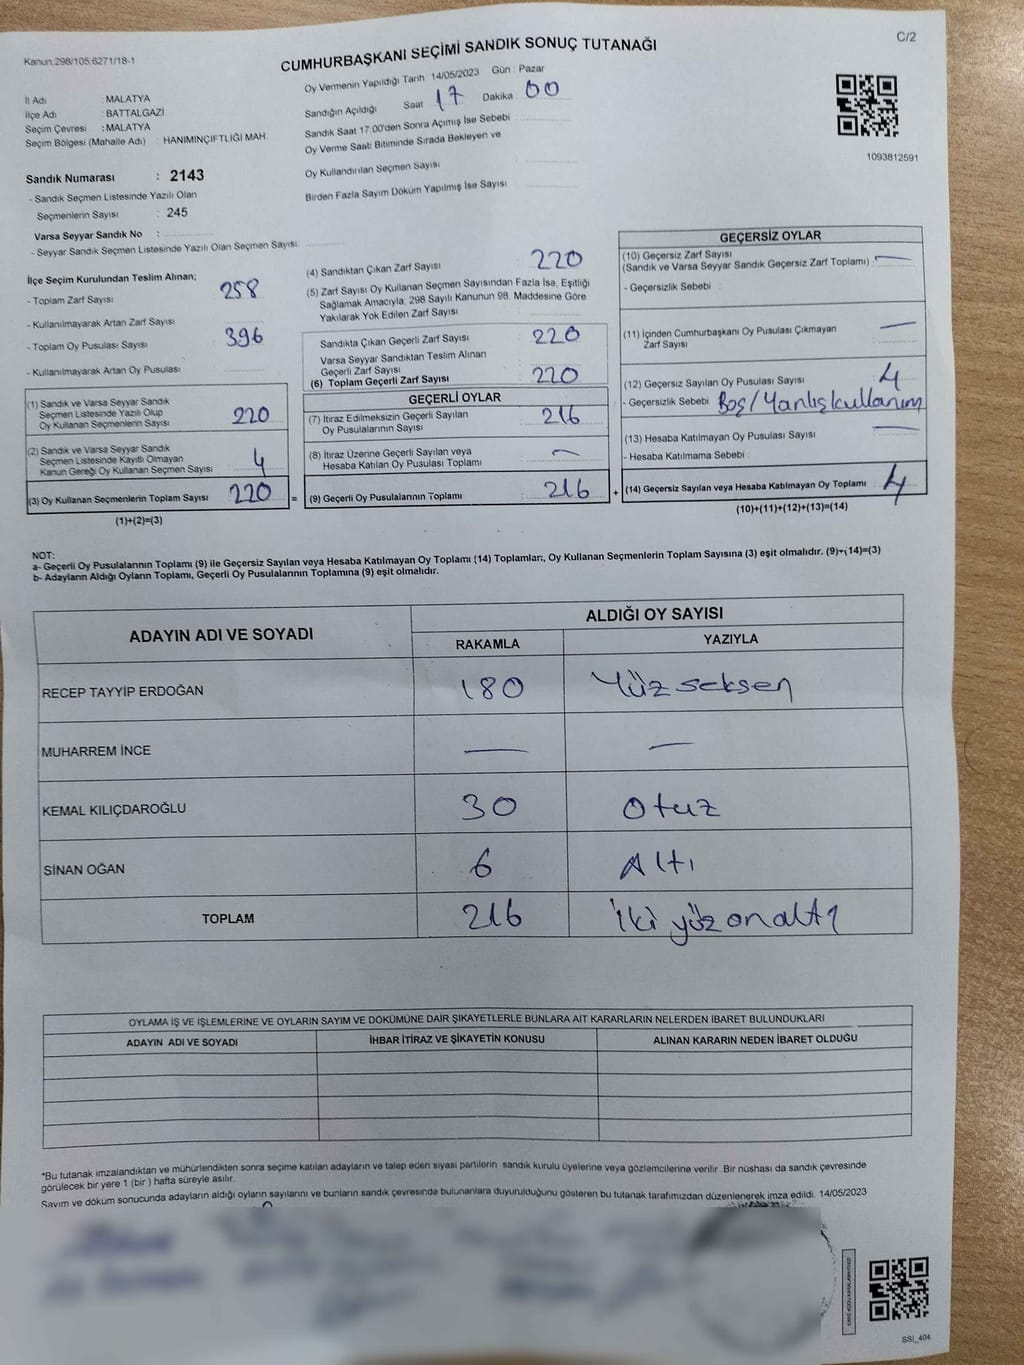 Kanun,298/105,6271/18-1
CUMHURBAŞKANI SEÇİMİ SANDIK SONUÇ TUTANAĞI
C/2
İl Adı : MALATYA
İlçe Adı : BATTALGAZİ
Seçim Çevresi : MALATYA
Seçim Bölgesi (Mahalle Adı) : HANIMINÇİFTLİĞİ MAH.
Sandık Numarası : 2143
- Sandık Seçmen Listesinde Yazılı Olan
Seçmenlerin Sayısı : 245
Varsa Seyyar Sandık No :
- Seyyar Sandık Seçmen Listesinde Yazılı Olan Seçmen Sayısı:
Oy Vermenin Yapıldığı Tarih 14/05/2023 Gün : Pazar
Sandığın Açıldığı Saat 17 Dakika : 00
Sandık Saat 17:00'den Sonra Açımış İse Sebebi
Oy Verme Saati Bitiminde Sırada Bekleyen ve
Oy Kullandırılan Seçmen Sayısı
Birden Fazla Sayım Döküm Yapılmış İse Sayısı
1093812591
İlçe Seçim Kurulundan Teslim Alınan;
- Toplam Zarf Sayısı 258
- Kullanılmayarak Artan Zarf Sayısı
- Toplam Oy Pusulası Sayısı 396
- Kullanılmayarak Artan Oy Pusulası
(1) Sandık ve Varsa Seyyar Sandık
Seçmen Listesinde Yazılı Olup
Oy Kullanan Seçmenlerin Sayısı 220
(2) Sandık ve Varsa Seyyar Sandık
Seçmen Listesinde Kayıtlı Olmayan
Kanun Gereği Oy Kullanan Seçmen Sayısı 4
(3) Oy Kullanan Seçmenlerin Toplam Sayısı 220 =
(1)+(2)=(3)
(4) Sandıktan Çıkan Zarf Sayısı 220
(5) Zarf Sayısı Oy Kullanan Seçmen Sayısından Fazla İse, Eşitliği
Sağlamak Amacıyla, 298 Sayılı Kanunun 98. Maddesine Göre
Yakılarak Yok Edilen Zarf Sayısı
Sandıkta Çıkan Geçerli Zarf Sayısı 220
Varsa Seyyar Sandıktan Teslim Alınan
Geçerli Zarf Sayısı
(6) Toplam Geçerli Zarf Sayısı 220
GEÇERLİ OYLAR
(7) İtiraz Edilmeksizin Geçerli Sayılan
Oy Pusulalarının Sayısı 216
(8) İtiraz Üzerine Geçerli Sayılan veya
Hesaba Katılan Oy Pusulası Toplamı —
(9) Geçerli Oy Pusulalarının Toplamı 216 +
GEÇERSİZ OYLAR
(10) Geçersiz Zarf Sayısı
(Sandık ve Varsa Seyyar Sandık Geçersiz Zarf Toplamı) —
- Geçersizlik Sebebi :
(11) İçinden Cumhurbaşkanı Oy Pusulası Çıkmayan
Zarf Sayısı —
(12) Geçersiz Sayılan Oy Pusulası Sayısı 4
- Geçersizlik Sebebi Boş/Yanlış kullanım
(13) Hesaba Katılmayan Oy Pusulası Sayısı —
- Hesaba Katılmama Sebebi :
(14) Geçersiz Sayılan veya Hesaba Katılmayan Oy Toplamı : 4
(10)+(11)+(12)+(13)=(14)
NOT:
a- Geçerli Oy Pusulalarının Toplamı (9) ile Geçersiz Sayılan veya Hesaba Katılmayan Oy Toplamı (14) Toplamları, Oy Kullanan Seçmenlerin Toplam Sayısına (3) eşit olmalıdır. (9)+(14)=(3)
b- Adayların Aldığı Oyların Toplamı, Geçerli Oy Pusulalarının Toplamına (9) eşit olmalıdır.
ADAYIN ADI VE SOYADI
ALDIĞI OY SAYISI
RAKAMLA YAZIYLA
RECEP TAYYİP ERDOĞAN 180 Yüz seksen
MUHARREM İNCE — —
KEMAL KILIÇDAROĞLU 30 Otuz
SİNAN OĞAN 6 Altı
TOPLAM 216 İki yüz onaltı
OYLAMA İŞ VE İŞLEMLERİNE VE OYLARIN SAYIM VE DÖKÜMÜNE DAİR ŞİKAYETLERLE BUNLARA AİT KARARLARIN NELERDEN İBARET BULUNDUKLARI
ADAYIN ADI VE SOYADI İHBAR İTİRAZ VE ŞİKAYETİN KONUSU ALINAN KARARIN NEDEN İBARET OLDUĞU
*Bu tutanak imzalandıktan ve mühürlendikten sonra seçime katılan adayların ve talep eden siyasi partilerin sandık kurulu üyelerine veya gözlemcilerine verilir. Bir nüshası da sandık çevresinde
görülecek bir yere 1 (bir) hafta süreyle asılır.
Sayım ve döküm sonucunda adayların aldığı oyların sayılarını ve bunların sandık çevresinde bulunanlara duyurulduğunu gösteren bu tutanak tarafımızdan düzenlenerek imza edildi. 14/05/2023
SSI_404